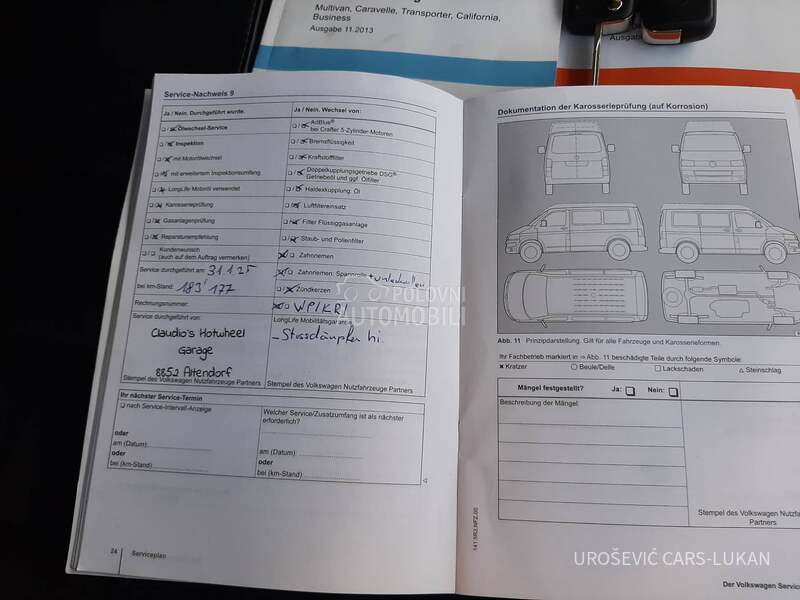 Multivan, Caravelle, Transporter, California,
Business
Ausgabe 11.2013
Ausgabe
Service-Nachweis 9
Ja / Nein. Durchgeführt wurde.
Ölwechsel-Service
Inspektion
mit Motorölwechsel
mit erweitertem Inspektionsumfang
LongLife Motoröl verwendet
Karosserieprüfung
Gasanlagenprüfung
Reparaturempfehlung
Kundenwunsch
(auch auf dem Auftrag vermerken)
Service durchgeführt am: 31.1.25
bei km-Stand: 183'177
Rechnungsnummer:
Service durchgeführt von:
Claudio's Hotwheel
Garage
8852 Altendorf
Stempel des Volkswagen Nutzfahrzeuge Partners
Ja / Nein. Wechsel von:
AdBlue®
bei Crafter 5-Zylinder-Motoren
Bremsflüssigkeit
Kraftstofffilter
Doppelkupplungsgetriebe DSG®
Getriebeöl und ggf. Ölfilter
Haldexkupplung: Öl
Luftfiltereinsatz
Filter Flüssiggasanlage
Staub- und Pollenfilter
Zahnriemen
Zahnriemen: Spannrolle + umlenkrollen
Zündkerzen
WP/KRI
LongLife Mobilitätsgarantie
- Stossdämpfer hi.
Stempel des Volkswagen Nutzfahrzeuge Partners
Ihr nächster Service-Termin
nach Service-Intervall-Anzeige
oder
am (Datum):
oder
bei (km-Stand):
Welcher Service/Zusatzumfang ist als nächster
erforderlich?
am (Datum):
oder
bei (km-Stand):
24 Serviceplan
Dokumentation der Karosserieprüfung (auf Korrosion)
Abb. 11 Prinzipdarstellung. Gilt für alle Fahrzeuge und Karosserieformen.
Ihr Fachbetrieb markiert in ⇒ Abb. 11 beschädigte Teile durch folgende Symbole:
× Kratzer ○ Beule/Delle □ Lackschaden △ Steinschlag
Mängel festgestellt? Ja: Nein:
Beschreibung der Mängel:
Stempel des Volkswagen Nutzfahrzeuge
Partners
141.5R3.NFZ.00
Der Volkswagen Service
POLOVNI
AUTOMOBILI
UROŠEVIĆ CARS-LUKAN